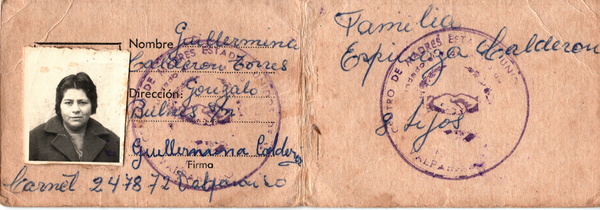 Nombre Guillermina
Calderon Torres
Dirección: Gonzalo
Bulnes
Guillermina Caldero
Firma
Carnet 247872 Valparaiso
Familia
Espinoza Calderon
8 hijos
CENTRO DE MADRES ESTADOS UNIDOS
VALPARAISO